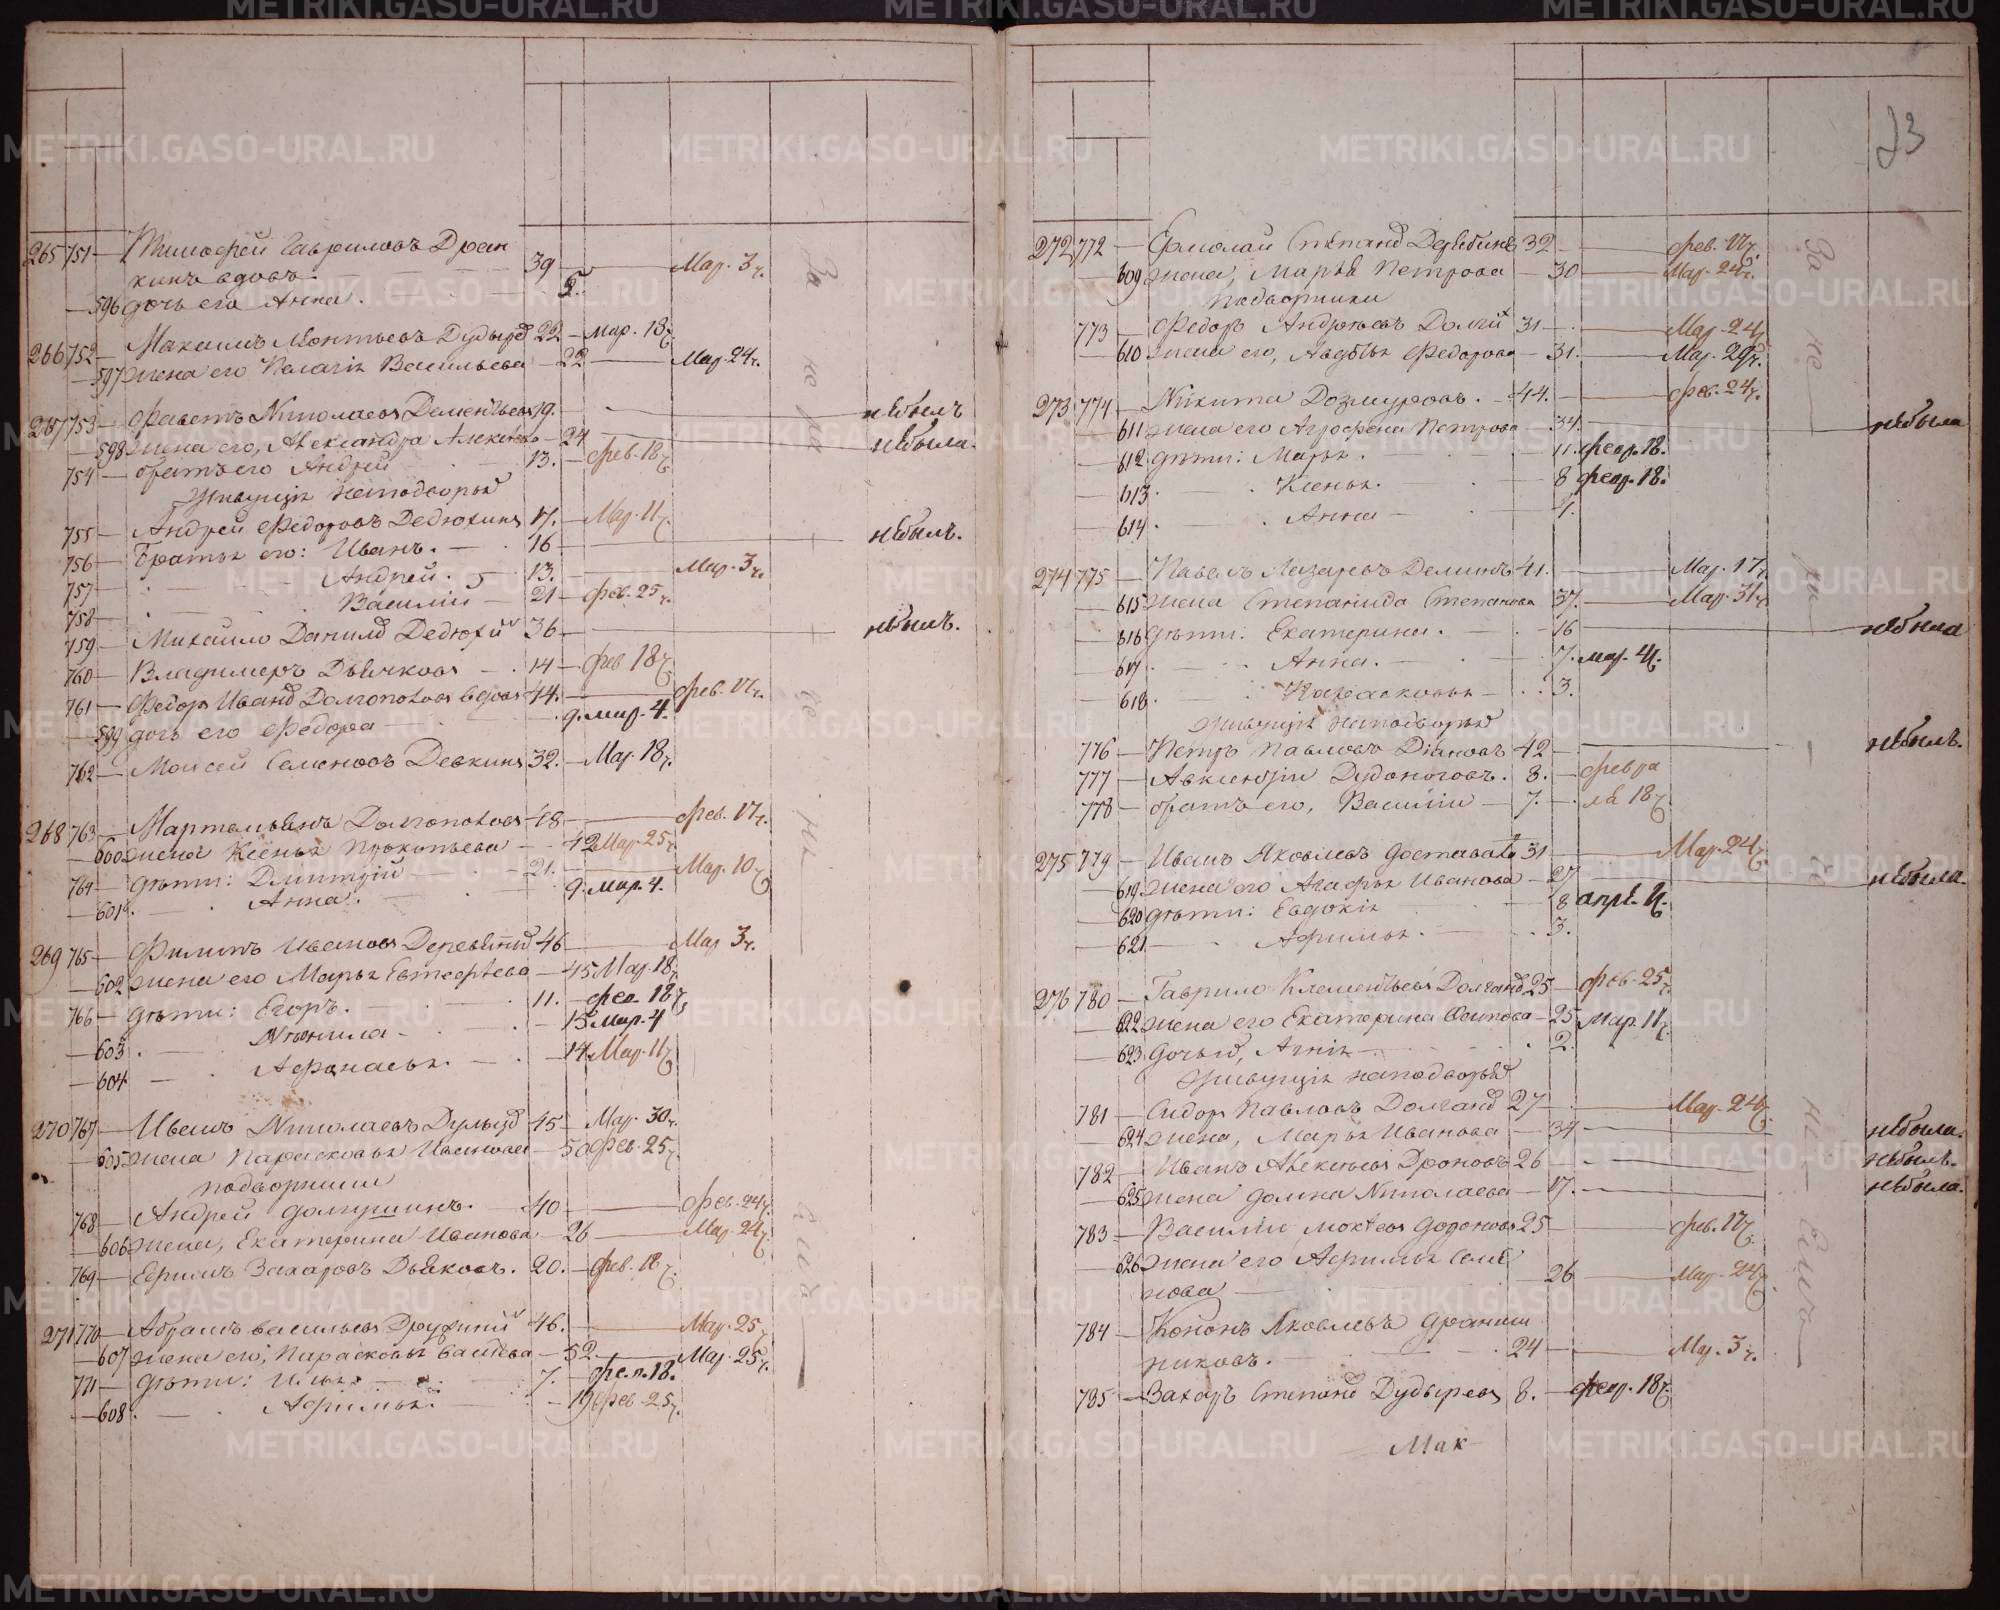 265 751 — Тимофей Гавриловъ Дран
кинъ вдовъ — 39 — Мар. 3 ч.
— 596 дочь его Анна. 5.
266 752 — Максимъ Леонтьевъ Дудырв 22 — мар. 18 ч.
— 597 жена его Пелагія Васильева — 22 — Мар. 24 ч.
267 753 — Николаевъ Дементьевъ 19. — небылъ
— 598 жена его, Александра Алексѣева — 24 — небыла.
754 — братъ его Андрей 13. — фев. 18 ч.
живущія наподворьѣ
755 — Андрей Федоровъ Дедюхинъ 17. — Мар. 11 ч.
756 — Братья его: Иванъ. — 16 — небылъ.
757 — Андрей. 13. — Мар. 3 ч.
758 — Василій — 21 — фев. 25 ч.
759 — Михайло Данилв Дедюхинъ 36 — небылъ.
760 — Владимеръ Дьячковъ — 14 — фев 18 ч.
761 — Федоръ Иванв Долгополовъ вдовъ 44. — фев. 17 ч.
— 599 дочь его Федора — 9. мар. 4.
762 — Моисей Семеновъ Девкинъ 32. — Мар. 18 ч.
268 763 — Мартемьянъ Долгополовъ 48 — фев. 17 ч.
— 600 жена Ксенья Прокопьева — 42 Мар. 25 ч.
764 — дѣти: Дмитрій 21. — Мар. 10 ч.
— 601. Анна. 9. Мар. 4.
269 765 — Филипъ Ивановъ 46 — Мар 3 ч.
— 602 жена его Марья Евтефѣева — 45 Мар. 18 ч.
766 — дѣти: Егоръ. 11. — фев. 18 ч.
— 603. Неонила — 15 Мар. 4
— 604 — Афанасья. — 14 Мар. 11 ч.
270 767 — Иванъ Николаевъ 45 — Мар. 30 ч.
— 605 жена Парасковья Иванова — 50 фев. 25 ч.
подворники
768 — Андрей 40 — фев. 24 ч.
— 606 жена, Екатерина Иванова — 26 — Мар. 24 ч.
769 — Ефимъ Захаровъ Дьяковъ. 20. — фев. 18 ч.
271 770 — Абрамъ Васильевъ Дружининъ 46. — Мар. 25 ч.
— 607 жена его, Парасковья — 52 — Мар. 25 ч.
771 — дѣти: Илья 7. — фев. 18.
— 608. Афимья. 19 фев. 25 ч.
За не
ра
се
ны
емъ
23
272 772 — Ермолай Степанв 32 — фев. 17 ч.
— 609 жена, Марья Петрова — 30 — Мар. 24 ч.
Подворники
773 — Федоръ Андрѣевъ Долгихъ 31 — Мар. 24 ч.
— 610 жена его, Авдотья Федорова — 31. — Мар. 29 ч.
273 774 — Никита Дозмуровъ. — 44. — фев. 24 ч.
— 611 жена его Агрофена Петрова 34. — небыла
— 612 дѣти: Марья. 11. февр. 18.
— 613. Ксенья. 8 февр. 18.
— 614. Анна — 4.
274 775 — Павелъ Лазаревъ Деминъ 41. — Мар. 17 ч.
— 615 жена Степанида Степанова 37. — Мар. 31 ч.
— 616 дѣти: Екатерина. — 16 — небыла
— 617. Анна. — 7. мар. 4 ч.
— 618. Парасковья — 3.
живущія наподворьѣ
776 — Петръ Павловъ Діановъ 42 — небылъ.
777 — Авксентій Дудоноговъ. 8. — февра
778 — братъ его, Василій — 7. — ля 18 ч.
275 779 — Иванъ Яковлевъ 31 — Мар. 24 ч.
— 619 жена его Агафья Иванова — 27 — небыла.
— 620 дѣти: Евдокія 8 апрѣ. 4.
— 621 — Афимья. — 3.
276 780 — Гаврило Клементьевъ Долганв 25 — фев. 25 ч.
— 622 жена его Екатерина Осипова — 25 Мар. 11 ч.
— 623 дочь ихъ, Агнія — 2.
живущія наподворьѣ
781 — Сидоръ Павловъ Долганв 27 — Мар. 24 ч.
— 624 жена, Марья Иванова — 34 — небыла.
782 — Иванъ Алексѣевъ Дроновъ 26 — небылъ.
— 625 жена Домна Николаева — 17. — небыла.
783 — Василій Додоновъ 25 — фев. 17 ч.
— 626 жена его Афимья Семе
нова — 26 — Мар. 24 ч.
784 — Кононъ Яковлевъ Драниш
никовъ. 24 — Мар. 3 ч.
785 — Захаръ Степанв Дудыревъ 8. — февр. 18 ч.
Мак
За не